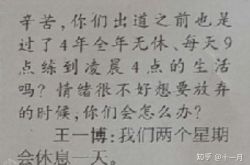 辛苦,你们出道之前也是
过了4年全年无休、每天9
点练到凌晨4点的生活
吗?情绪很不好想要放弃
的时候,你们会怎么办?
王一博:我们两个星期
会休息一天。
知乎 @十一月